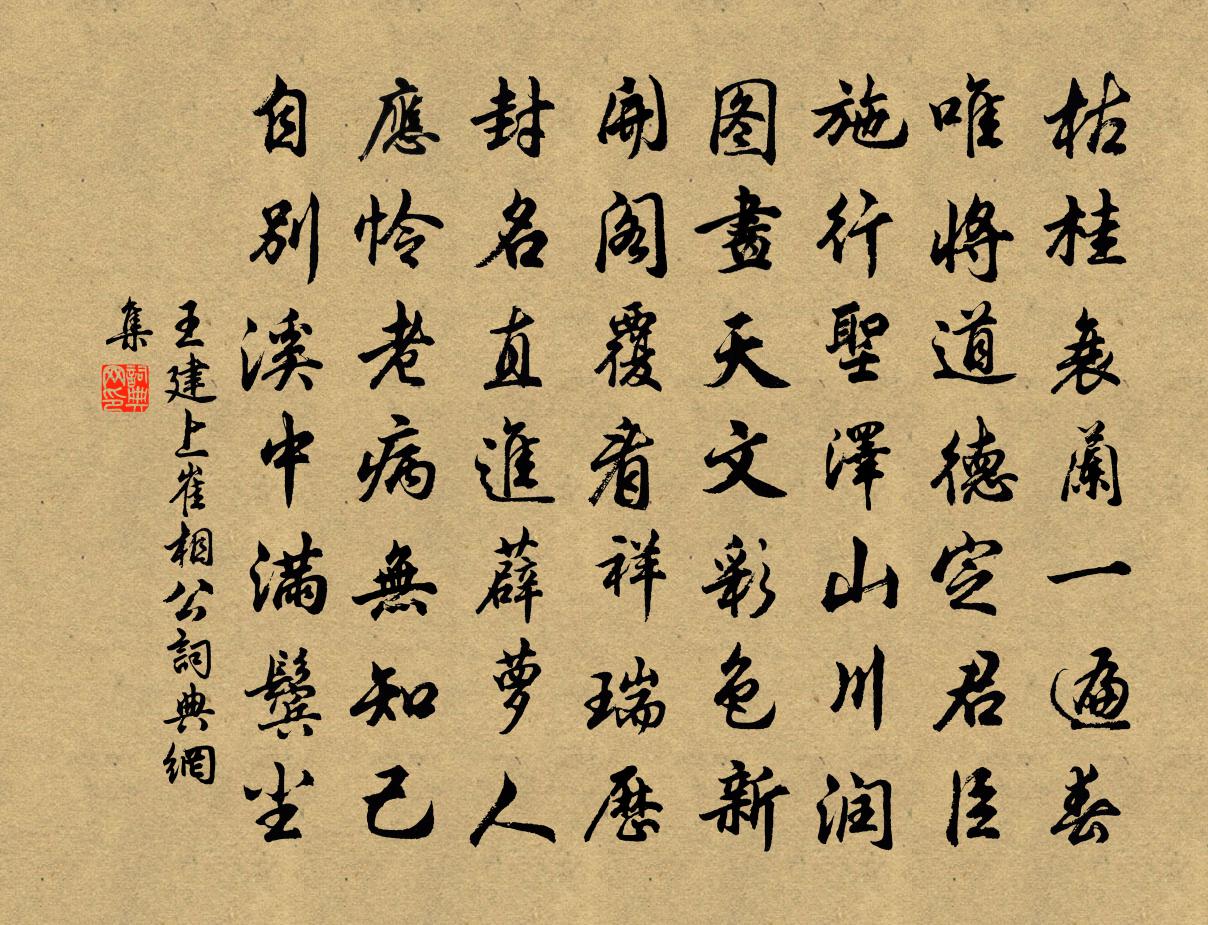 枯桂衰蘭一遍春
唯將道德定君臣
施行聖澤山川润
图畫天文彩色新
開阁覆看祥瑞歷
封名直進薜萝人
應怜老病無知己
自别溪中满鬓尘
王建上崔相公詞典網
集
詞典网印